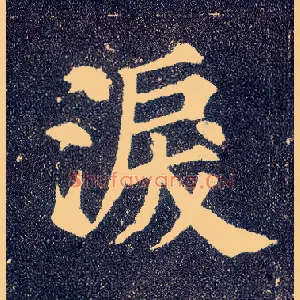 淚
Shufawang.cn